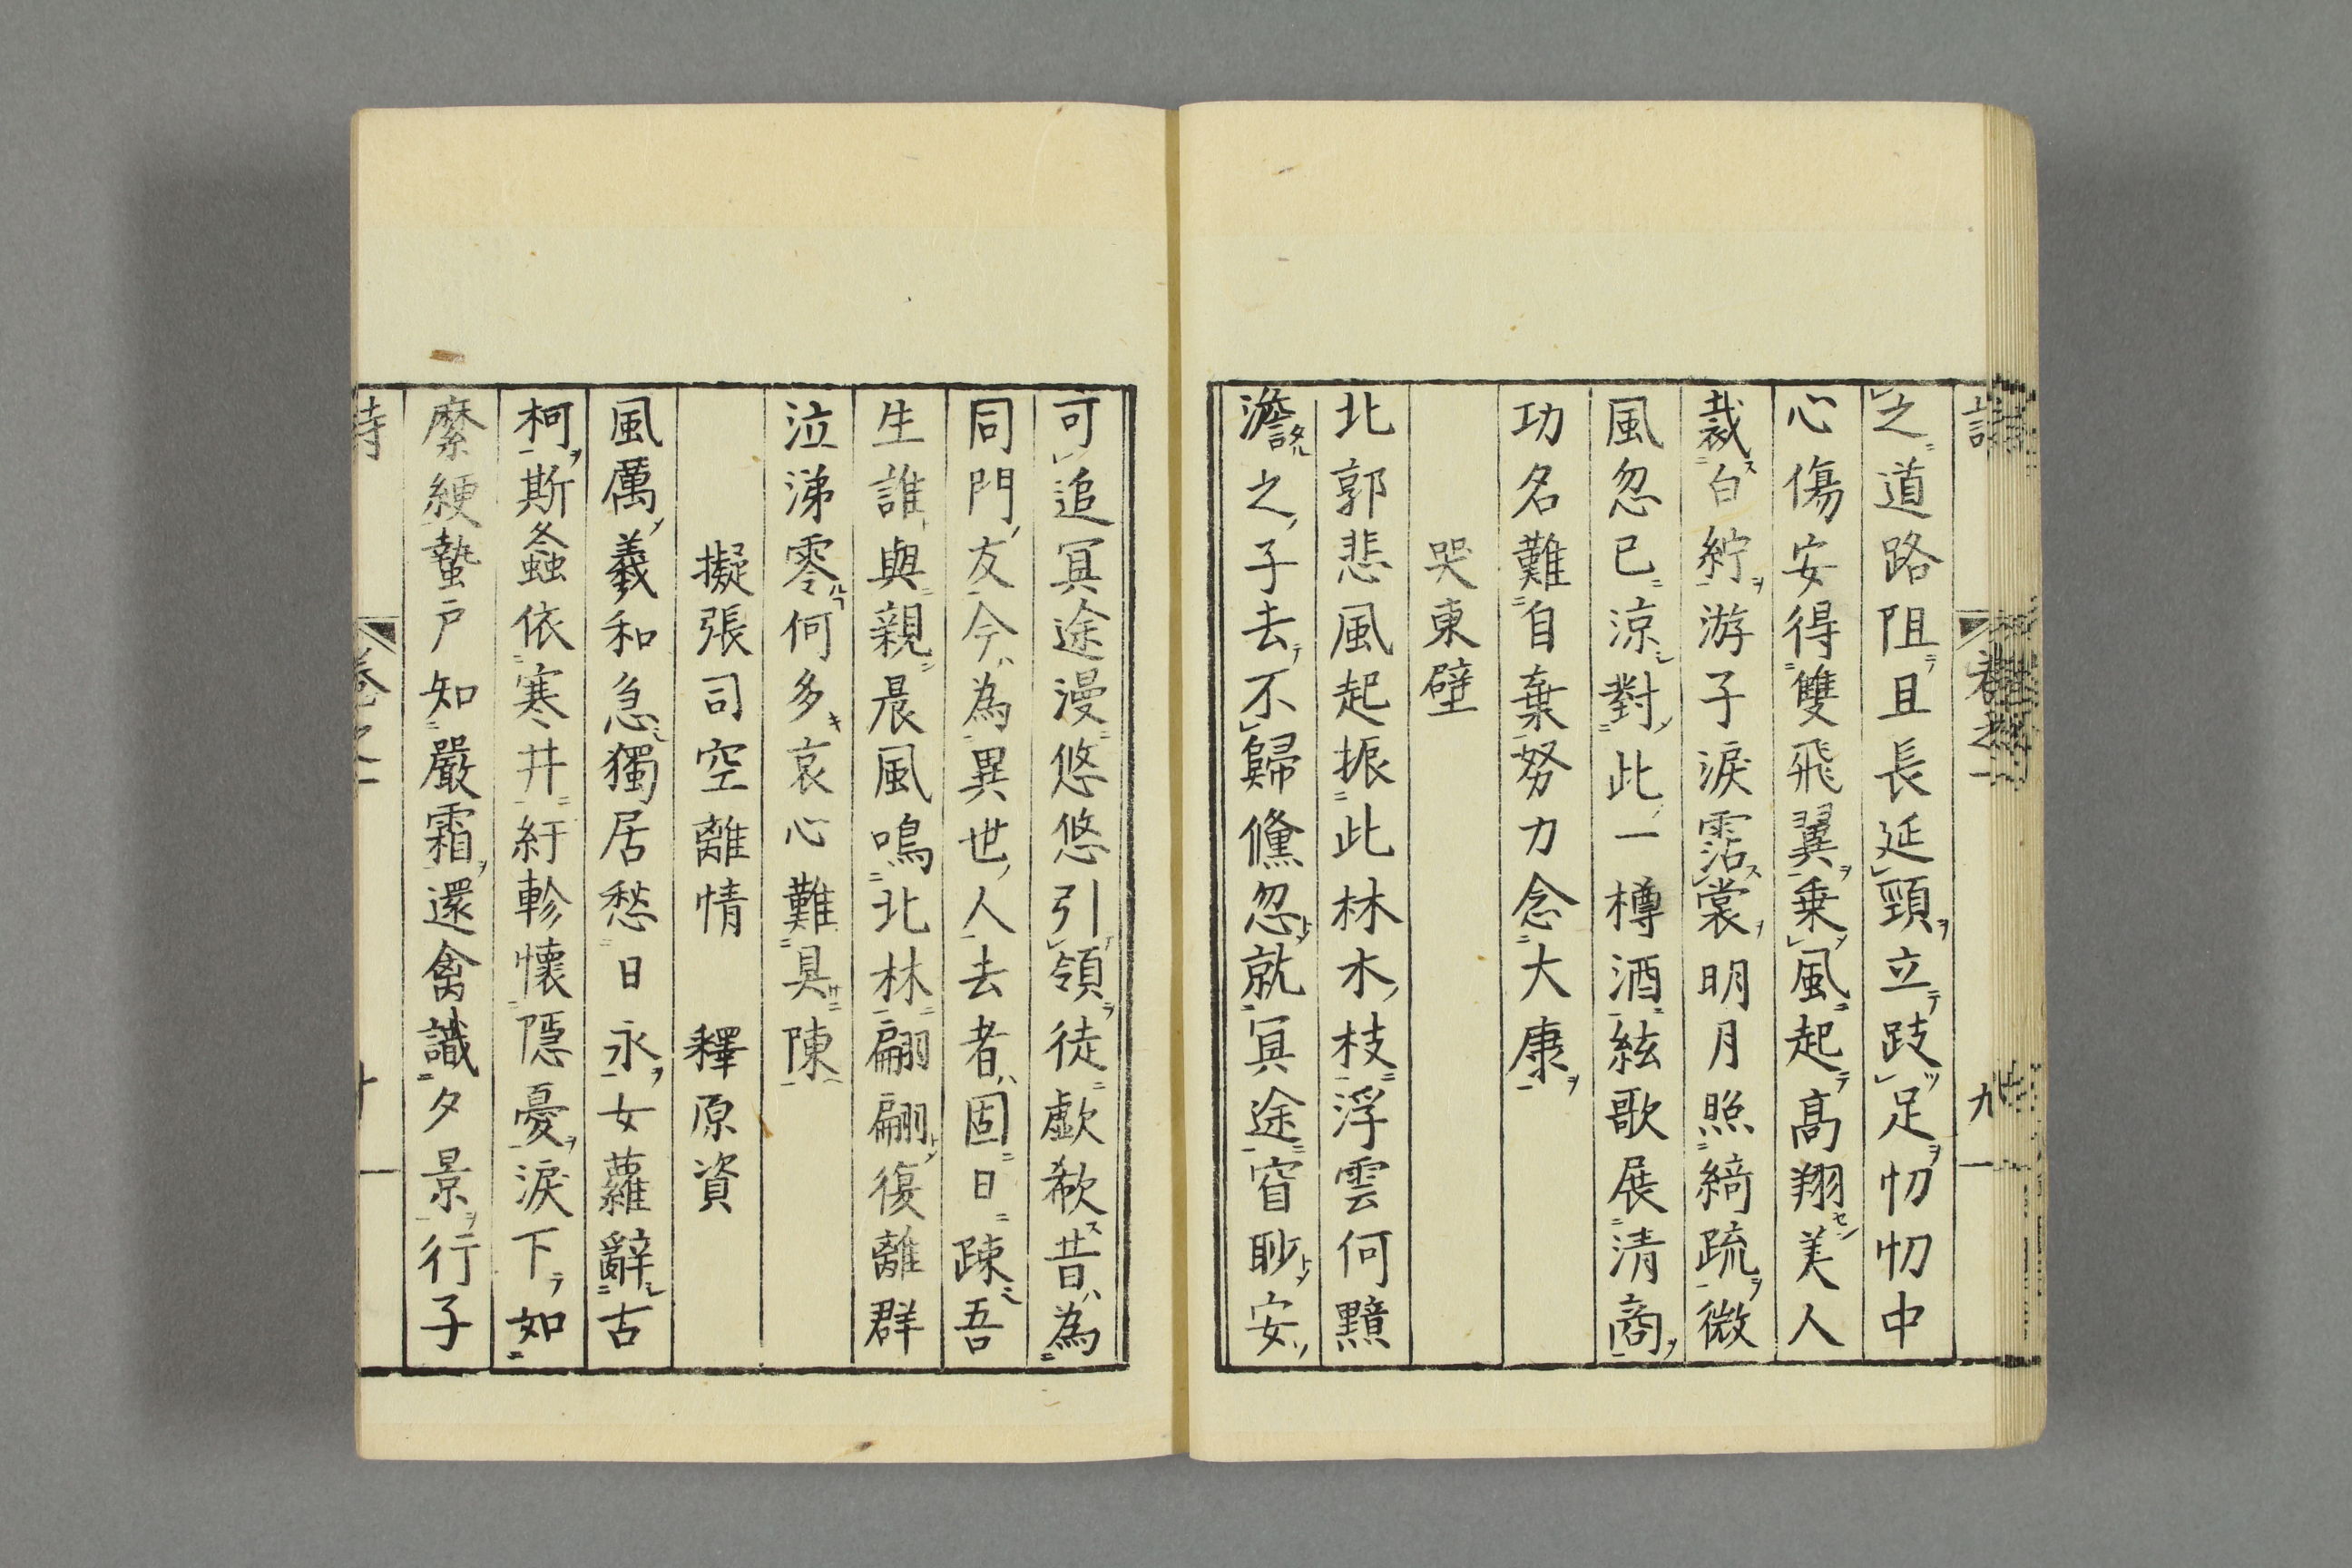 之道路阻且長延頸立跂足忉忉中
心傷安得雙飛翼乗風起髙翔美人
裁白紵游子淚霑裳明月照綺疏微
風忽已涼對此一樽酒絃歌展清商
功名難自棄努力念大康
哭東壁
北郭悲風起振此林木枝浮雲何黯
澹詺之子去不歸儵忽就冥途窅眇安
可追冥途漫悠悠引領徒歔欷昔為
同門友今為異世人去者固日疎吾
生誰與親晨風鳴北林翩翩復離群
泣涕零何多哀心難具陳
擬張司空離情 釋原資
風厲羲和急獨居愁日永女蘿辭古
柯斯螽依寒井紆軫懷隱憂淚下如
縻綆蟄戸知嚴霜還禽識夕景行子
卷之一
九